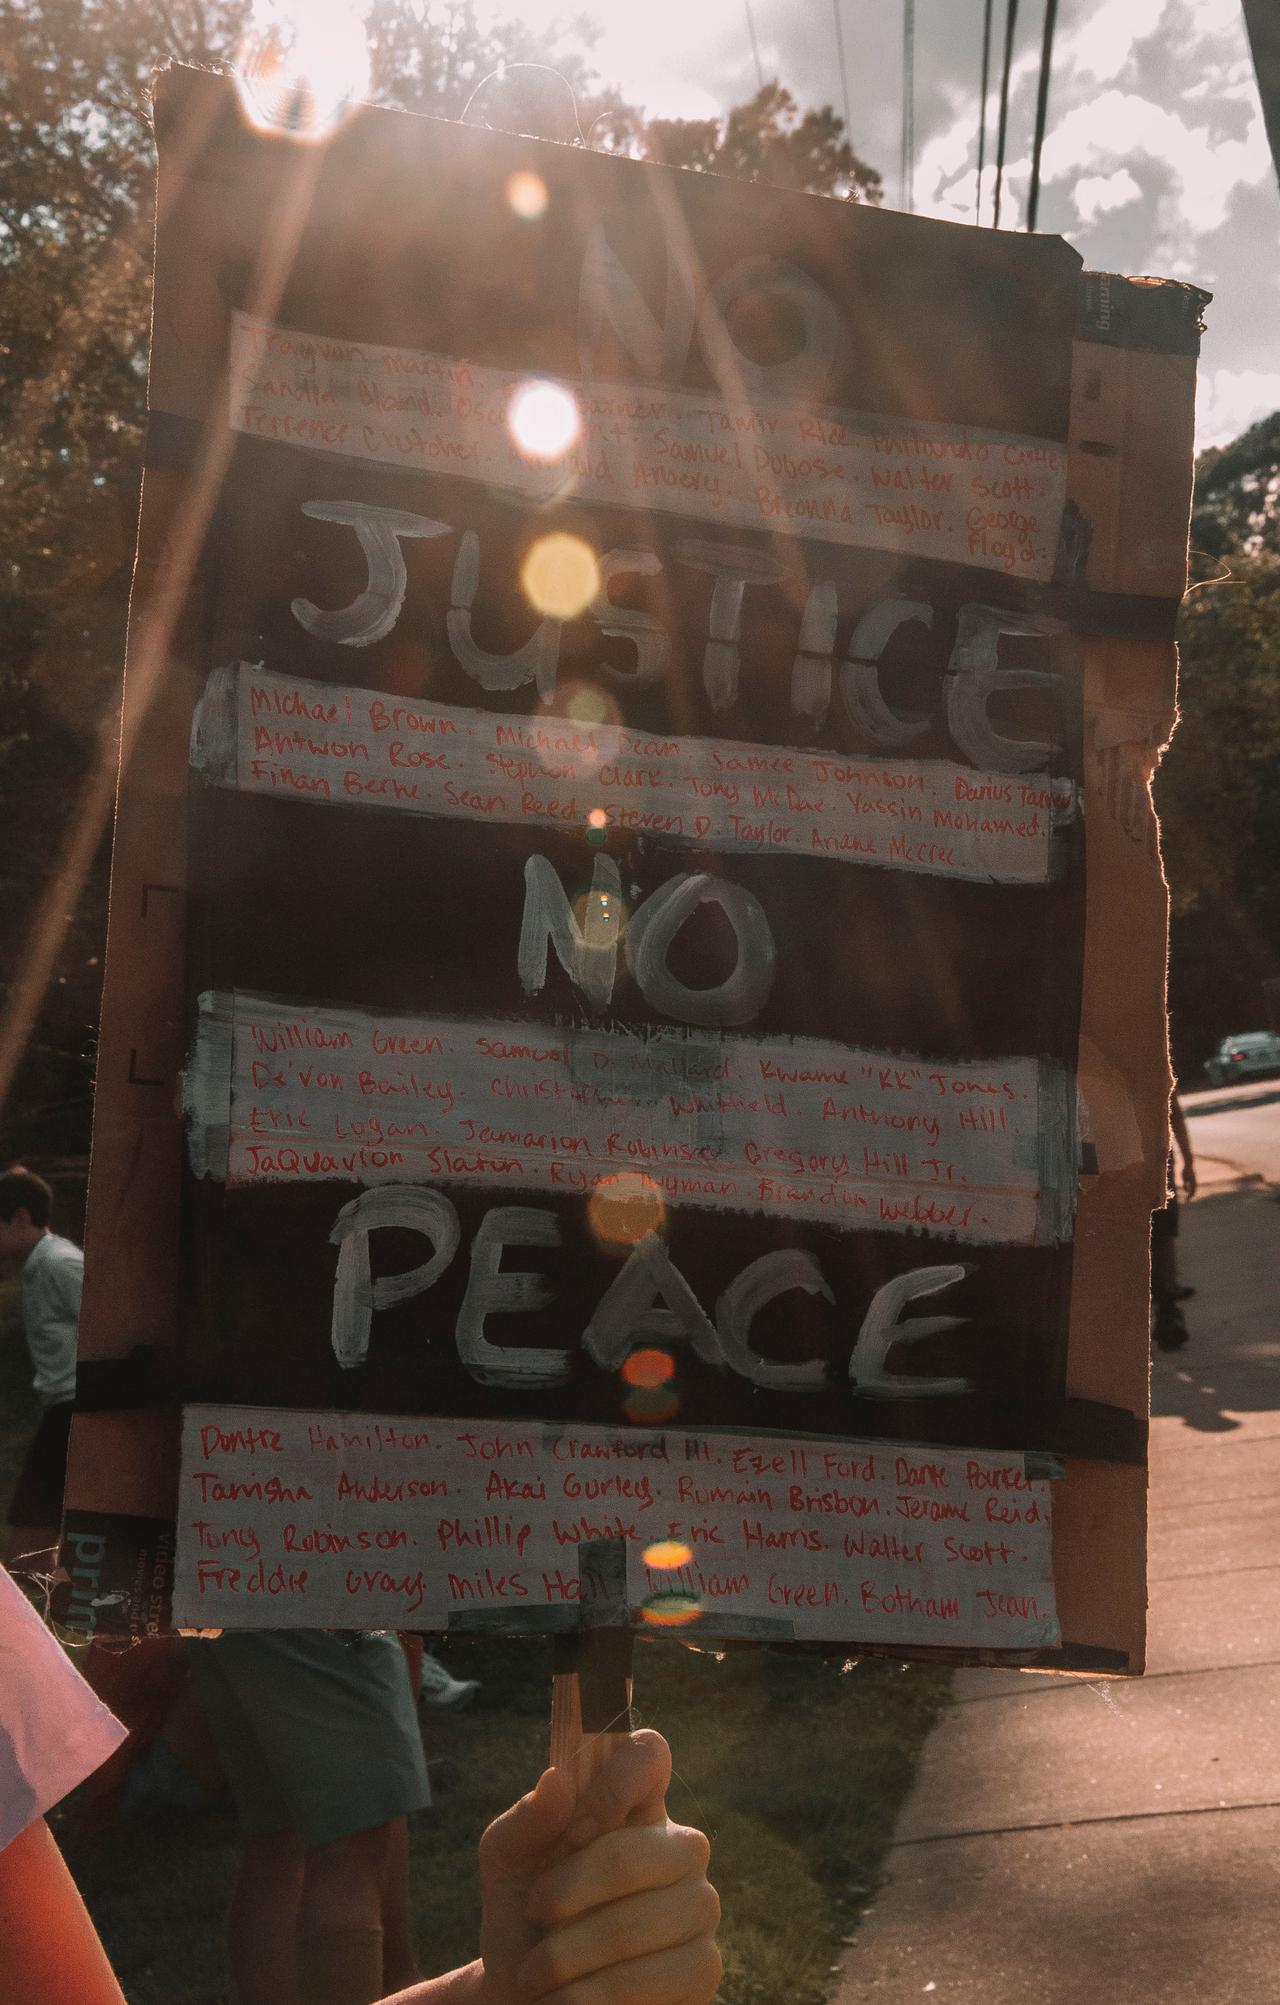 NO
Trayvon Martin. Garner. Tamir Rice. Philando Castile
Sandra Bland. Samuel Dubose. Walter Scott.
Terrence Crutcher. Breonna Taylor. George
Floyd.
JUSTICE
Michael Brown. Michael Dean. Jamee Johnson. Darius
Antwon Rose. Stephon Clark. Tony McDae. Yassin Mohamed.
Finan Berhe. Sean Reed. Steven D. Taylor. Ariane McCree.
NO
William Green. Samuel D. Mallard. Kwame "KK" Jones.
De'von Bailey. Whitfield. Anthony Hill.
Eric Logan. Jamarion Robinson Gregory Hill Jr.
JaQuavion Slaton. Ryan Twyman. Brandon Webber.
PEACE
Dontre Hamilton. John Crawford III. Ezell Ford. Dante Parker.
Tanisha Anderson. Akai Gurley. Rumain Brisbon. Jerame Reid.
Tony Robinson. Phillip White. Eric Harris. Walter Scott.
Freddie Gray. Miles Hall William Green. Botham Jean.